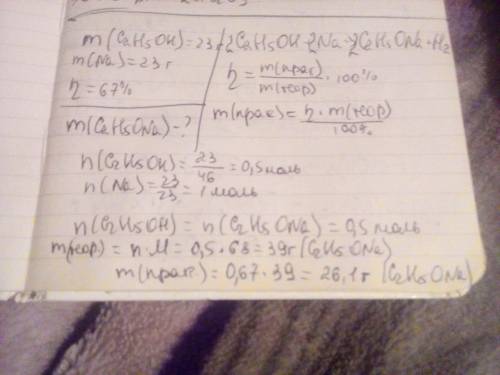 m(C2H5OH)=23г
2C2H5OH+2Na→2C2H5ONa+H2
m(Na)=23г
η=67%
η=m(прак)/m(теор)·100%
m(C2H5ONa)-?
m(прак)=η·m(теор)/100%
n(C2H5OH)=23/46=0,5моль
n(Na)=23/23=1моль
n(C2H5OH)=n(C2H5ONa)=0,5моль
m(теор)=n·M=0,5·68=39г(C2H5ONa)
m(прак)=0,67·39=26,1г(C2H5ONa)